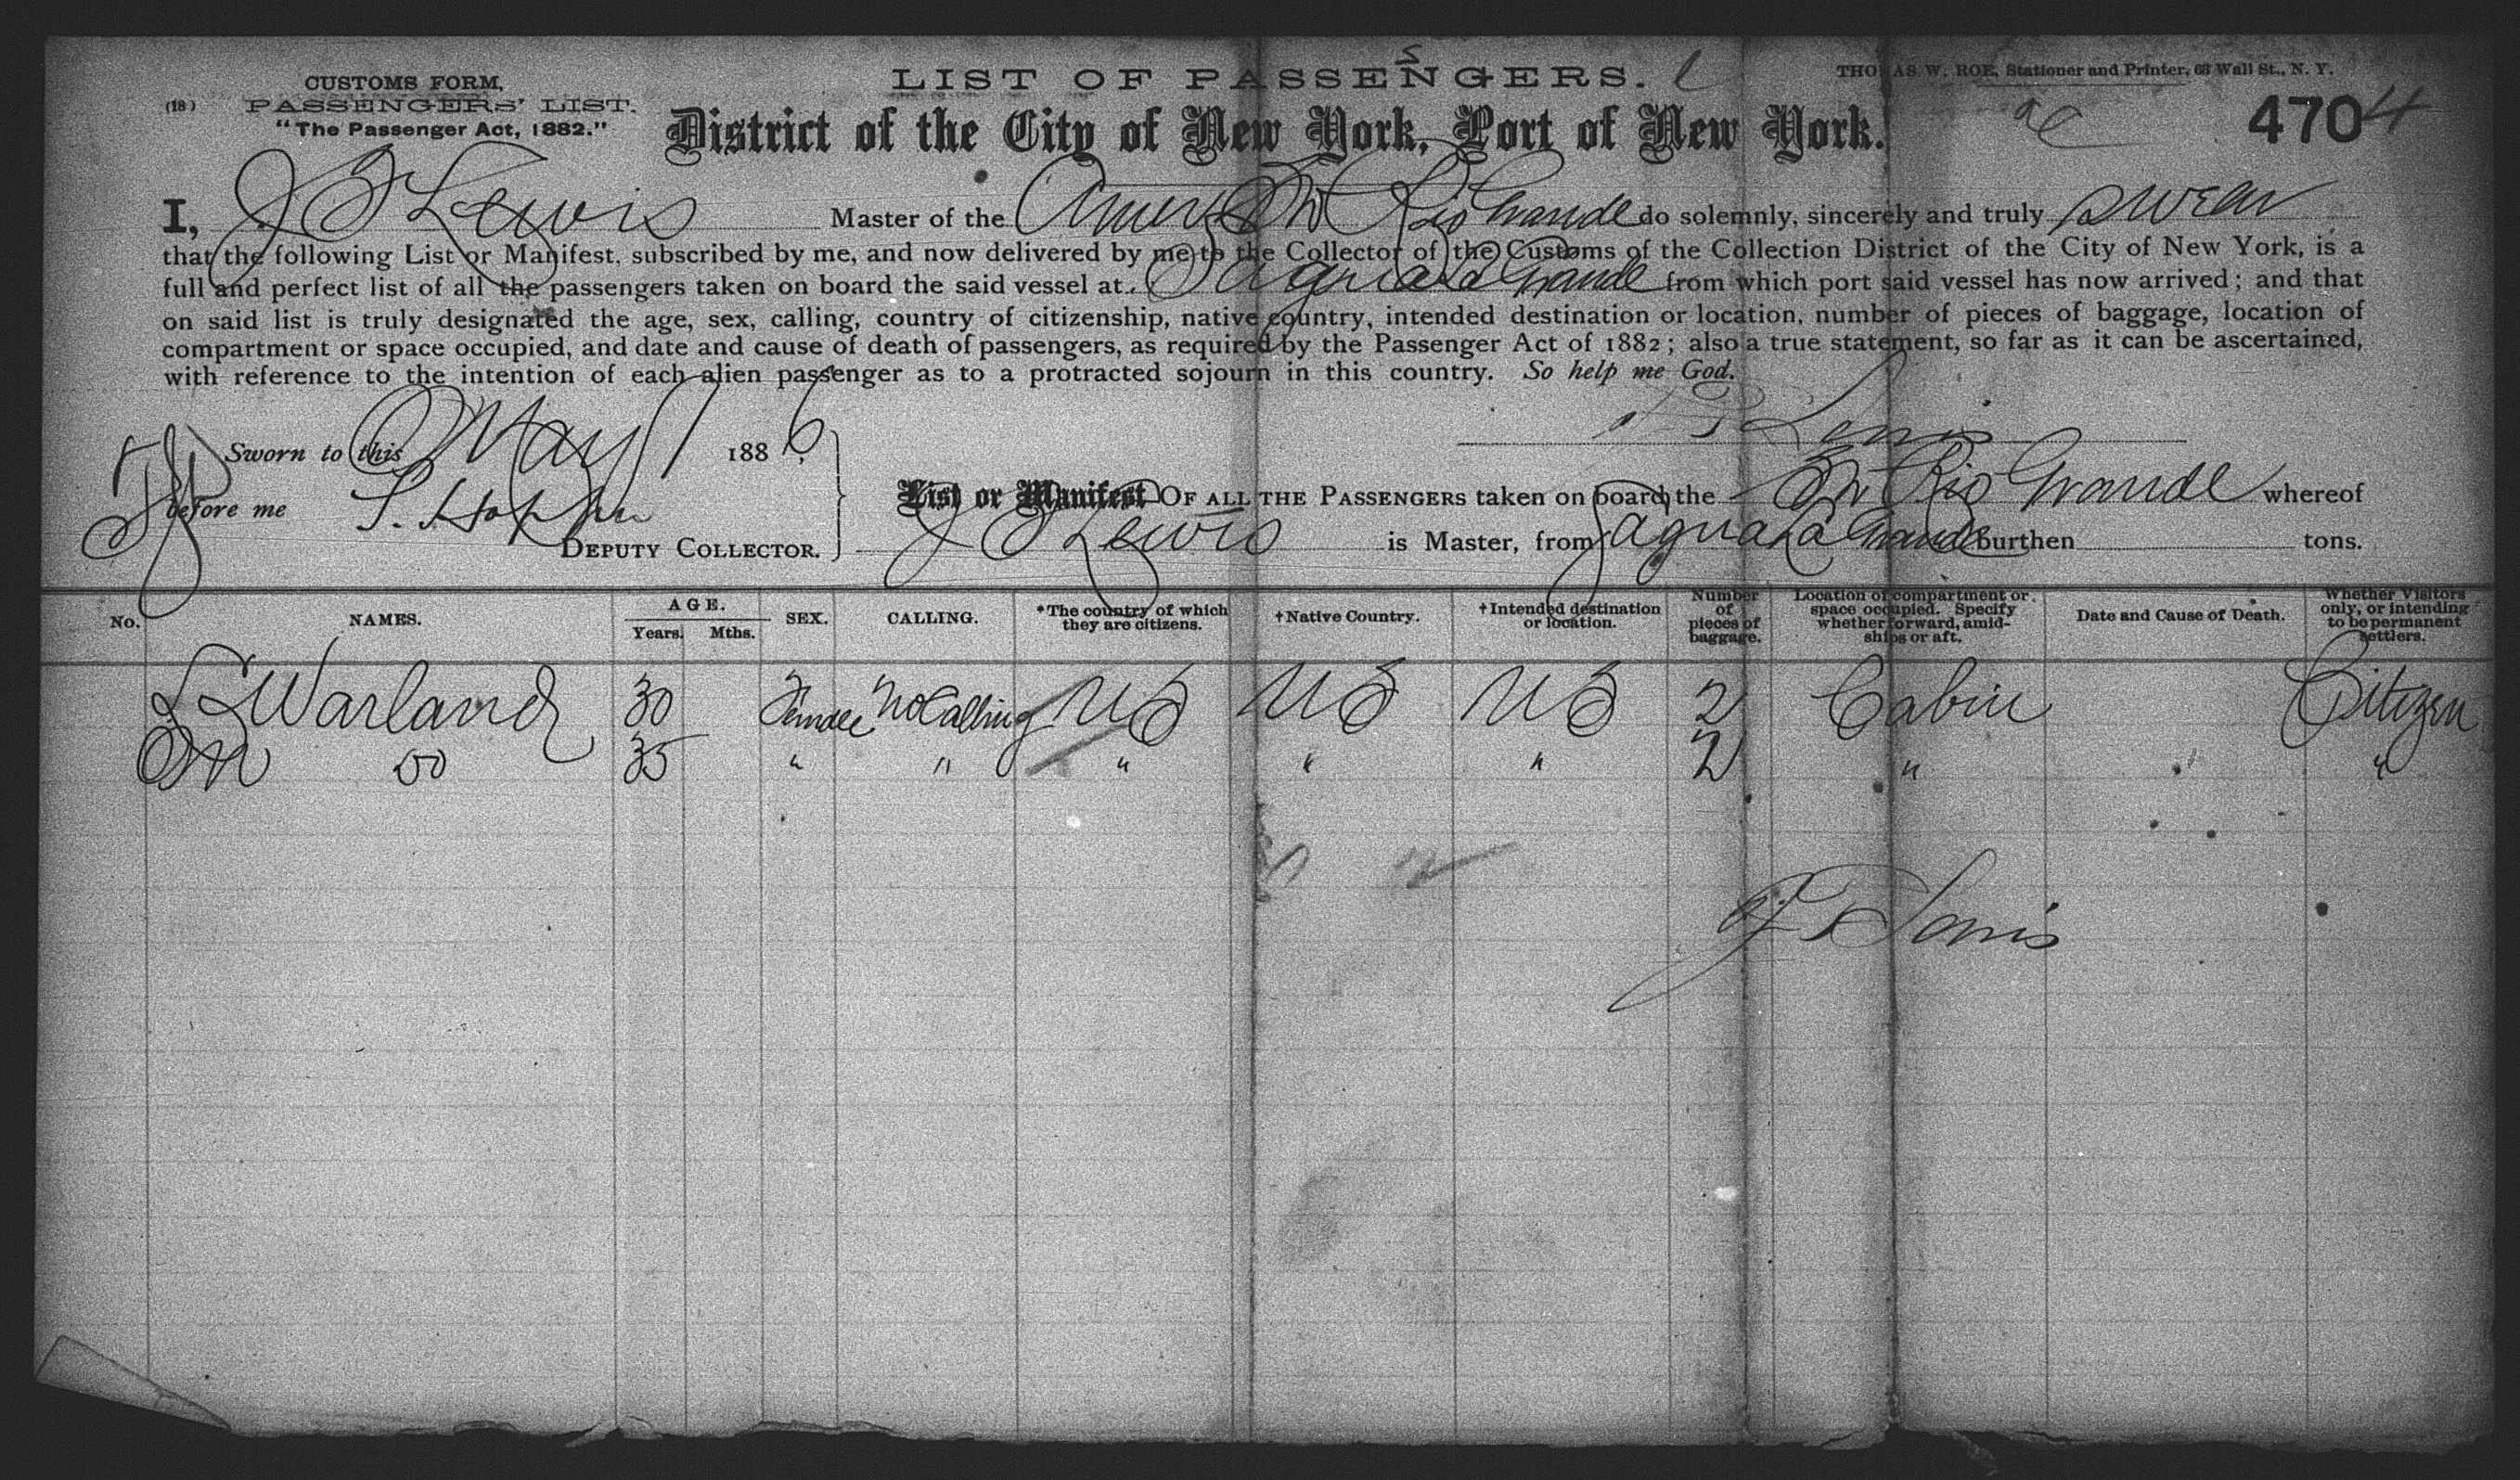 LIST OF PASSENGERS.
THOMAS W. ROE, Stationer and Printer, 63 Wall St., N. Y.
(18)
CUSTOMS FORM,
PASSENGERS' LIST.
"The Passenger Act, 1882."
District of the City of New York, Port of New York.
470 4
I, J S Lewis Master of the Amer Str Rio Grande do solemnly, sincerely and truly swear
that the following List or Manifest, subscribed by me, and now delivered by me to the Collector of the Customs of the Collection District of the City of New York, is a
full and perfect list of all the passengers taken on board the said vessel at Sagua La Grande from which port said vessel has now arrived; and that
on said list is truly designated the age, sex, calling, country of citizenship, native country, intended destination or location, number of pieces of baggage, location of
compartment or space occupied, and date and cause of death of passengers, as required by the Passenger Act of 1882; also a true statement, so far as it can be ascertained,
with reference to the intention of each alien passenger as to a protracted sojourn in this country. So help me God.
Lewis
Sworn to this May 1 1886,
before me
DEPUTY COLLECTOR.
List or Manifest OF ALL THE PASSENGERS taken on board the Str Rio Grande whereof
J S Lewis is Master, from Sagua La Grande burthen tons.
No. NAMES. AGE. Years. Mths. SEX. CALLING. *The country of which they are citizens. †Native Country. †Intended destination or location. Number of pieces of baggage. Location of compartment or space occupied. Specify whether forward, amidships or aft. Date and Cause of Death. Whether Visitors only, or intending to be permanent settlers.
Warland 30 Female No Calling US US US 2 Cabin Citizen
M do 35 " " " " " 2 " "